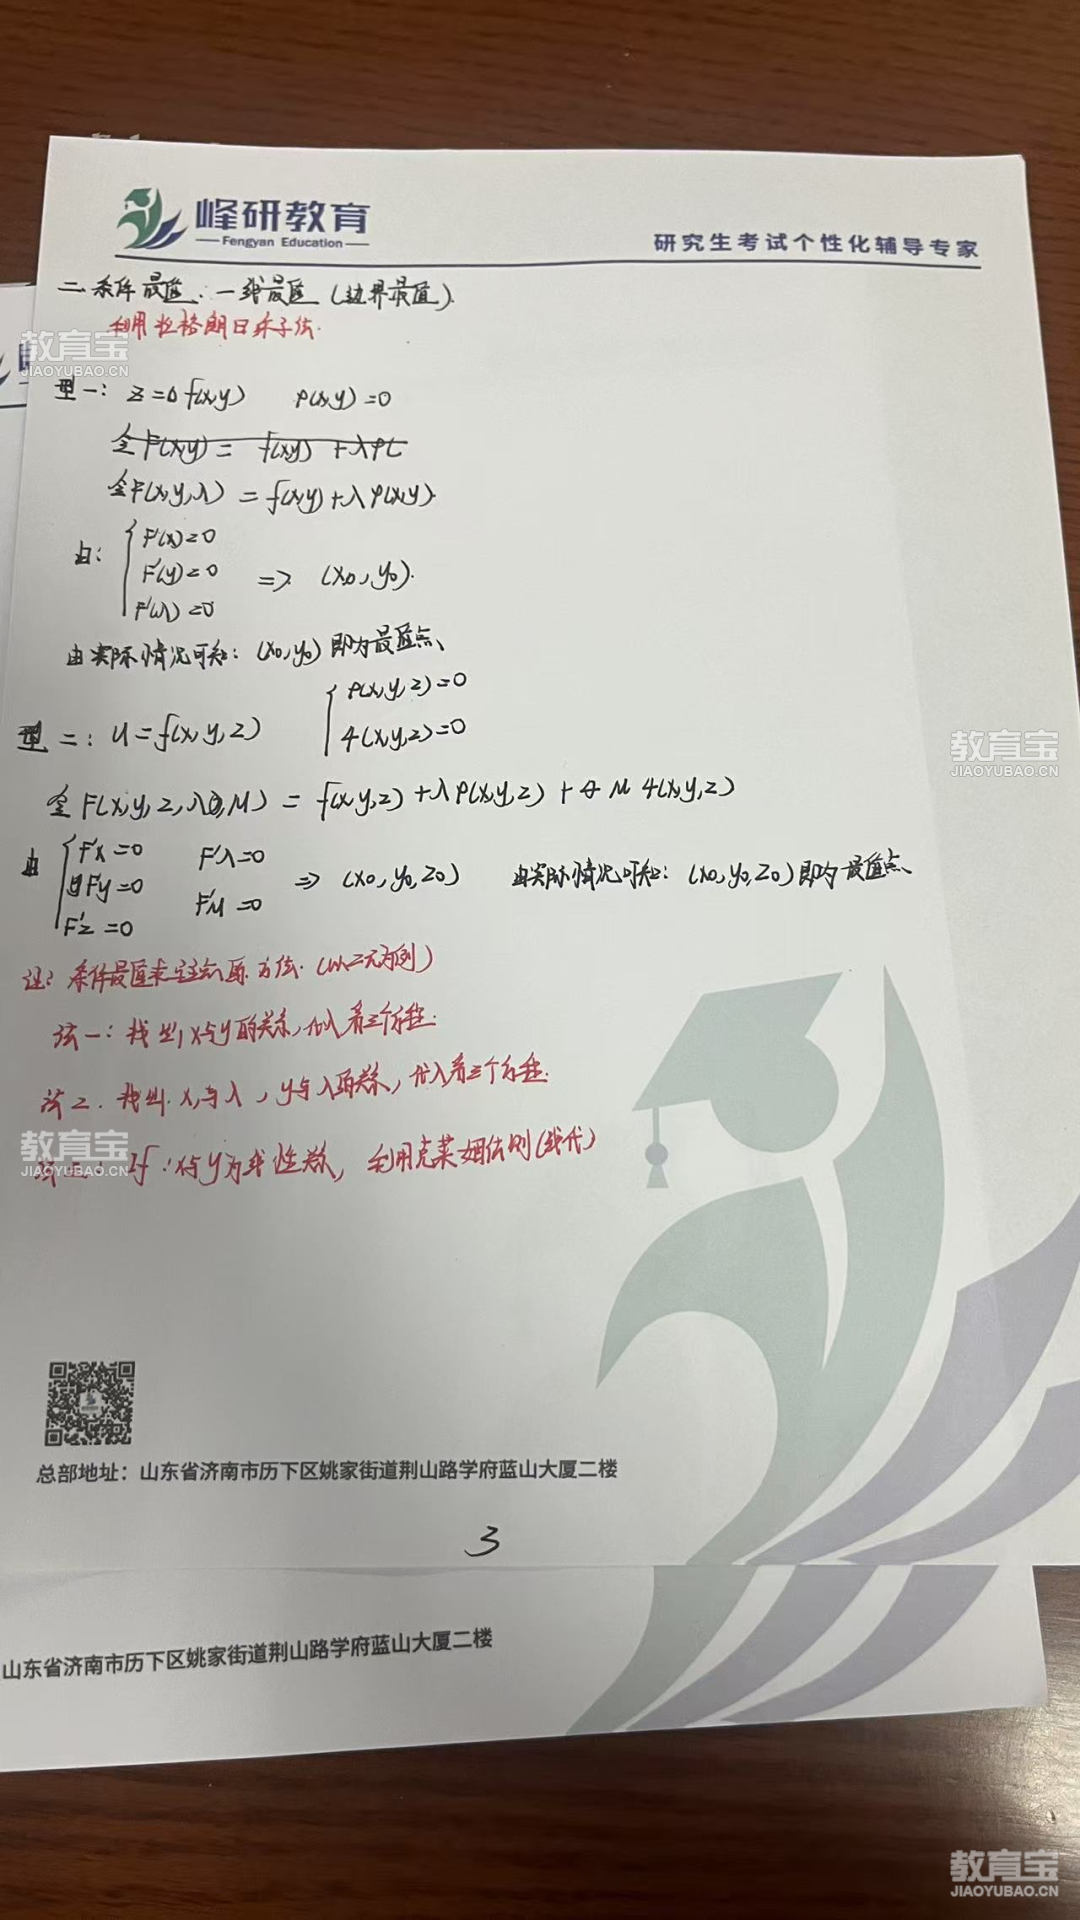 峰研教育
Fengyan Education
研究生考试个性化辅导专家
二、条件最值:一线最值(边界最值).
利用拉格朗日乘子法.
教育宝
JIAOYUBAO.CN
型一: z=f(x,y) φ(x,y)=0
令F(x,y)= f(x,y) +λφ(
令F(x,y,λ) = f(x,y)+λφ(x,y).
由: { F'(x)=0
F'(y)=0 ⇒ (x0,y0).
F'(λ)=0
由实际情况可知: (x0,y0)即为最值点、
型二: u=f(x,y,z) { φ(x,y,z)=0
ψ(x,y,z)=0
教育宝
JIAOYUBAO.CN
令F(x,y,z,λ,μ) = f(x,y,z)+λφ(x,y,z)+μψ(x,y,z)
由 { F'x=0 F'λ=0
F'y=0 ⇒ (x0,y0,z0) 由实际情况可知: (x0,y0,z0)即为最值点、
F'z=0 F'μ=0
注: 条件最值求方法.(以二元为例)
法一: 找出x与y的关系,代入第三个方程.
法二. 找出x与λ,y与λ的关系,代入第三个方程.
教育宝
JIAOYUBAO.CN
法三: If:x与y为线性关系,利用克莱姆法则(线代)
总部地址:山东省济南市历下区姚家街道荆山路学府蓝山大厦二楼
3
山东省济南市历下区姚家街道荆山路学府蓝山大厦二楼
教育宝
JIAOYUBAO.CN